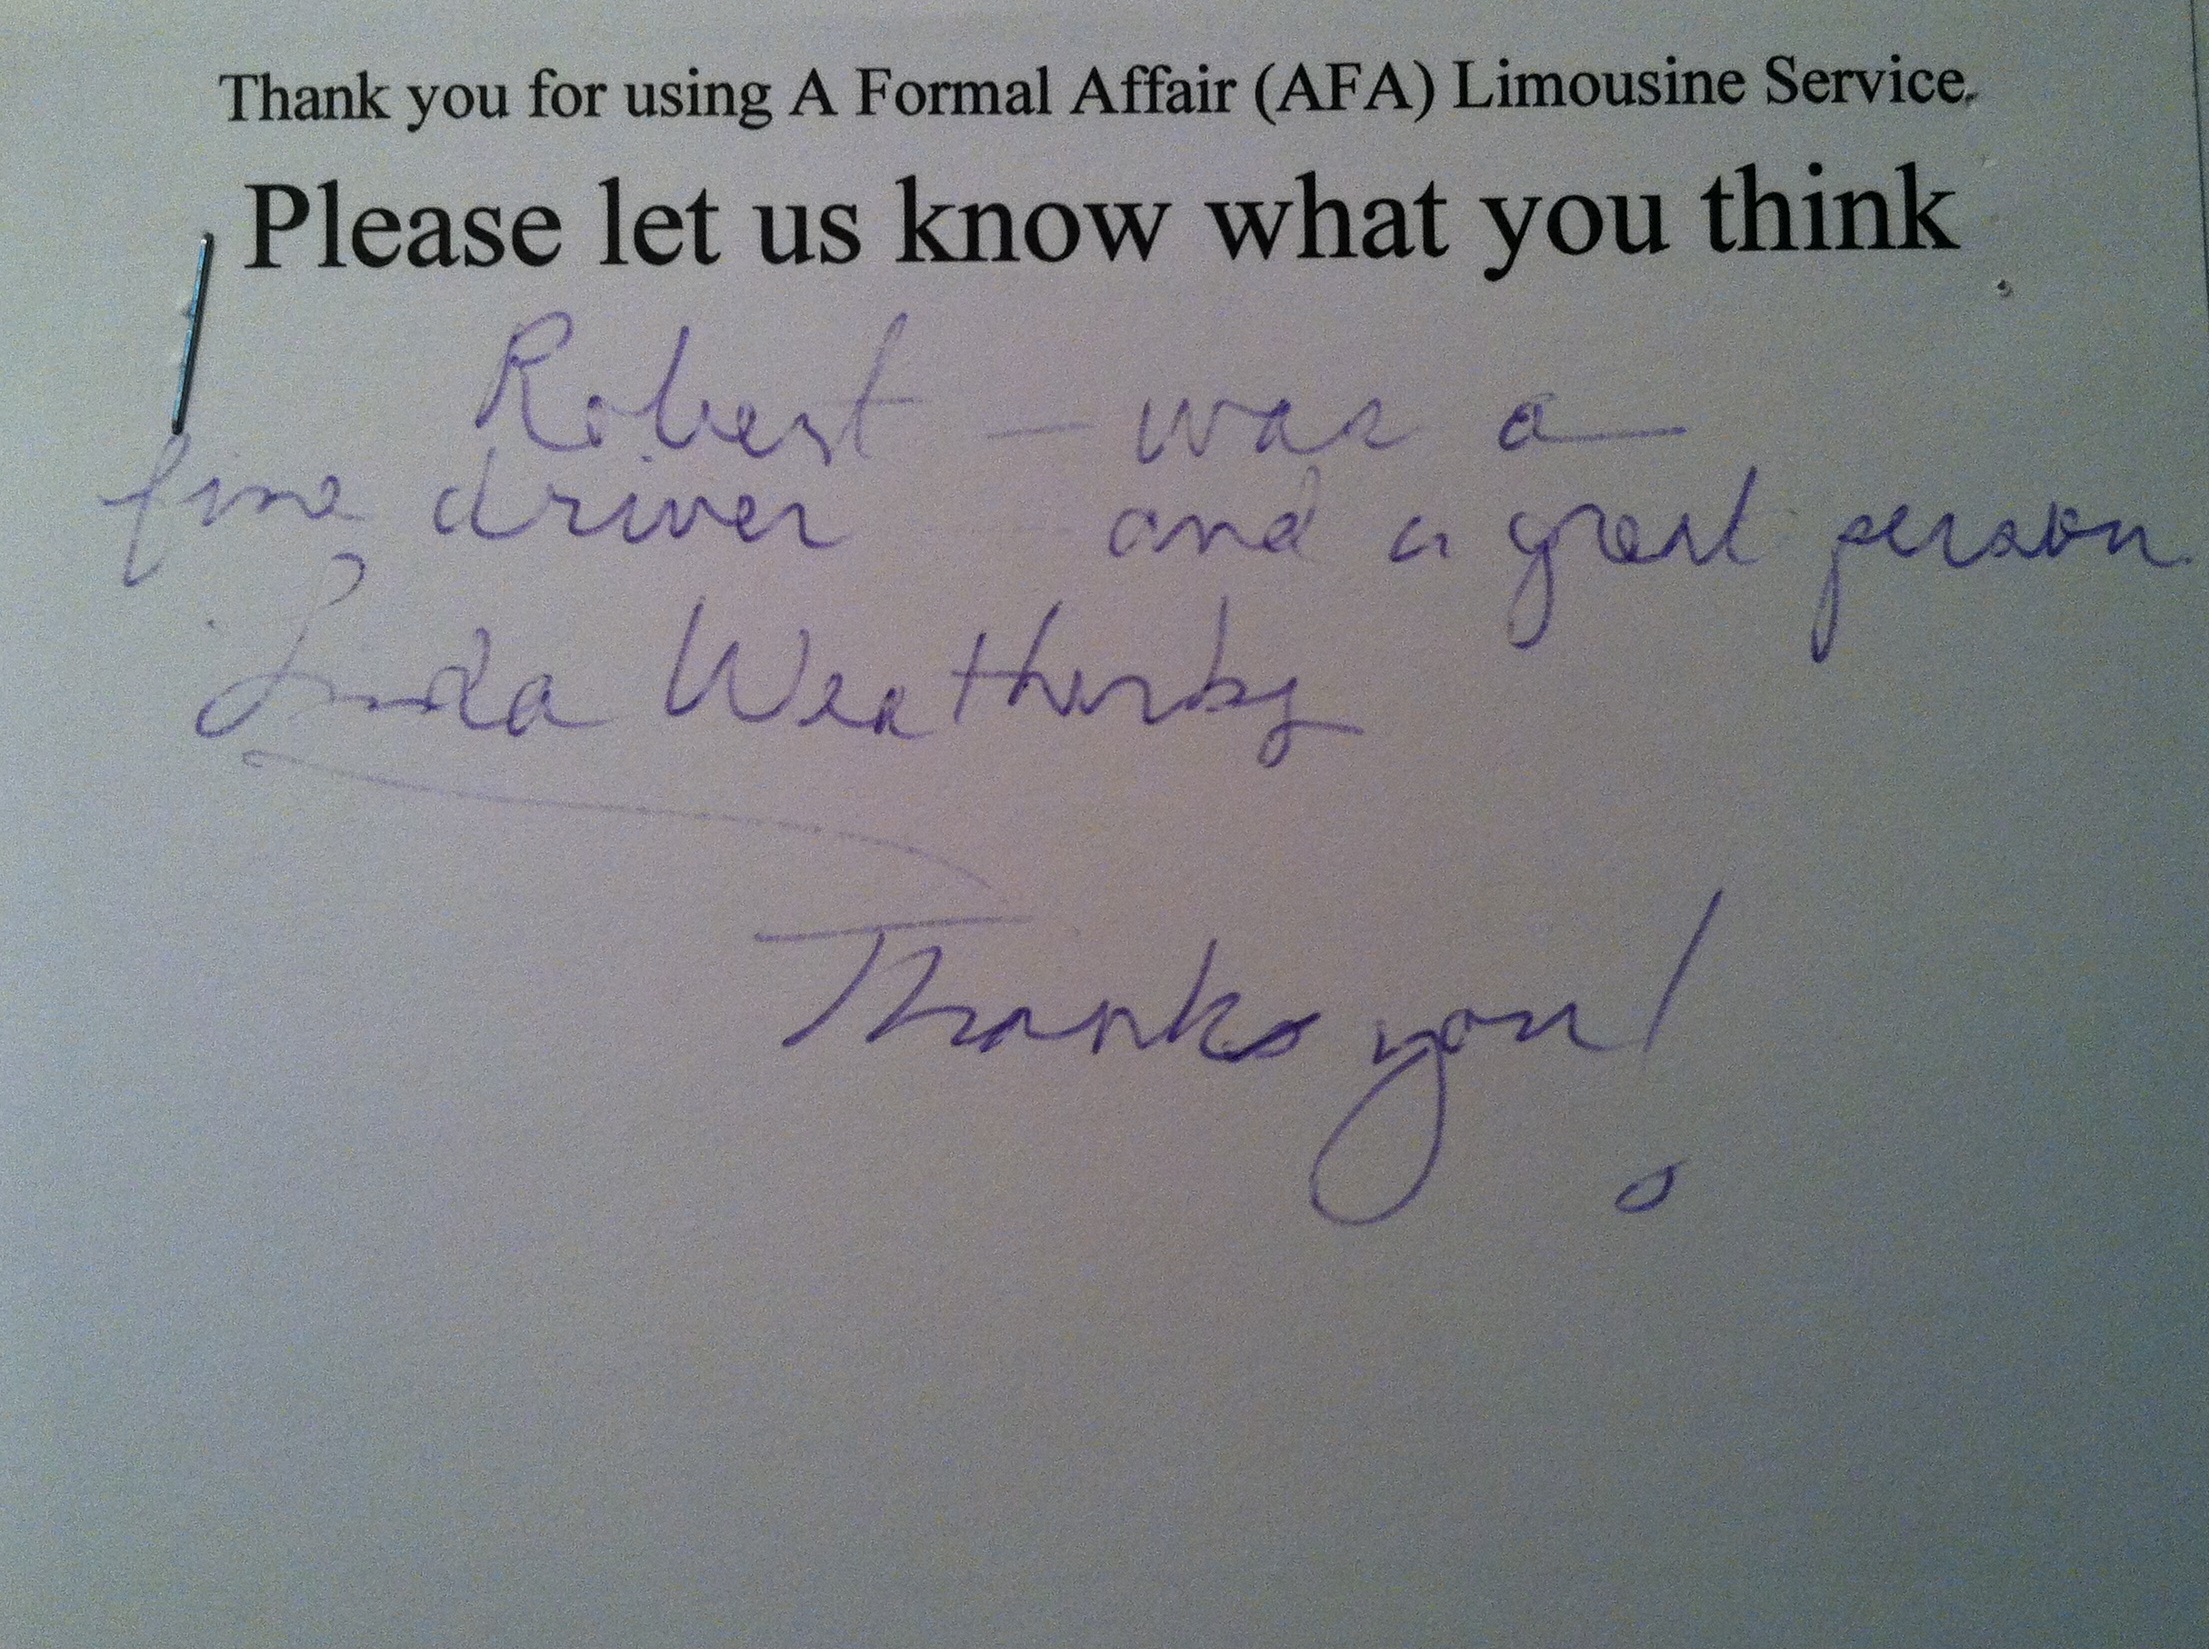 Thank you for using A Formal Affair (AFA) Limousine Service.
Please let us know what you think
Robert — was a
fine driver and a great person
Linda Weatherby
Thanks you!